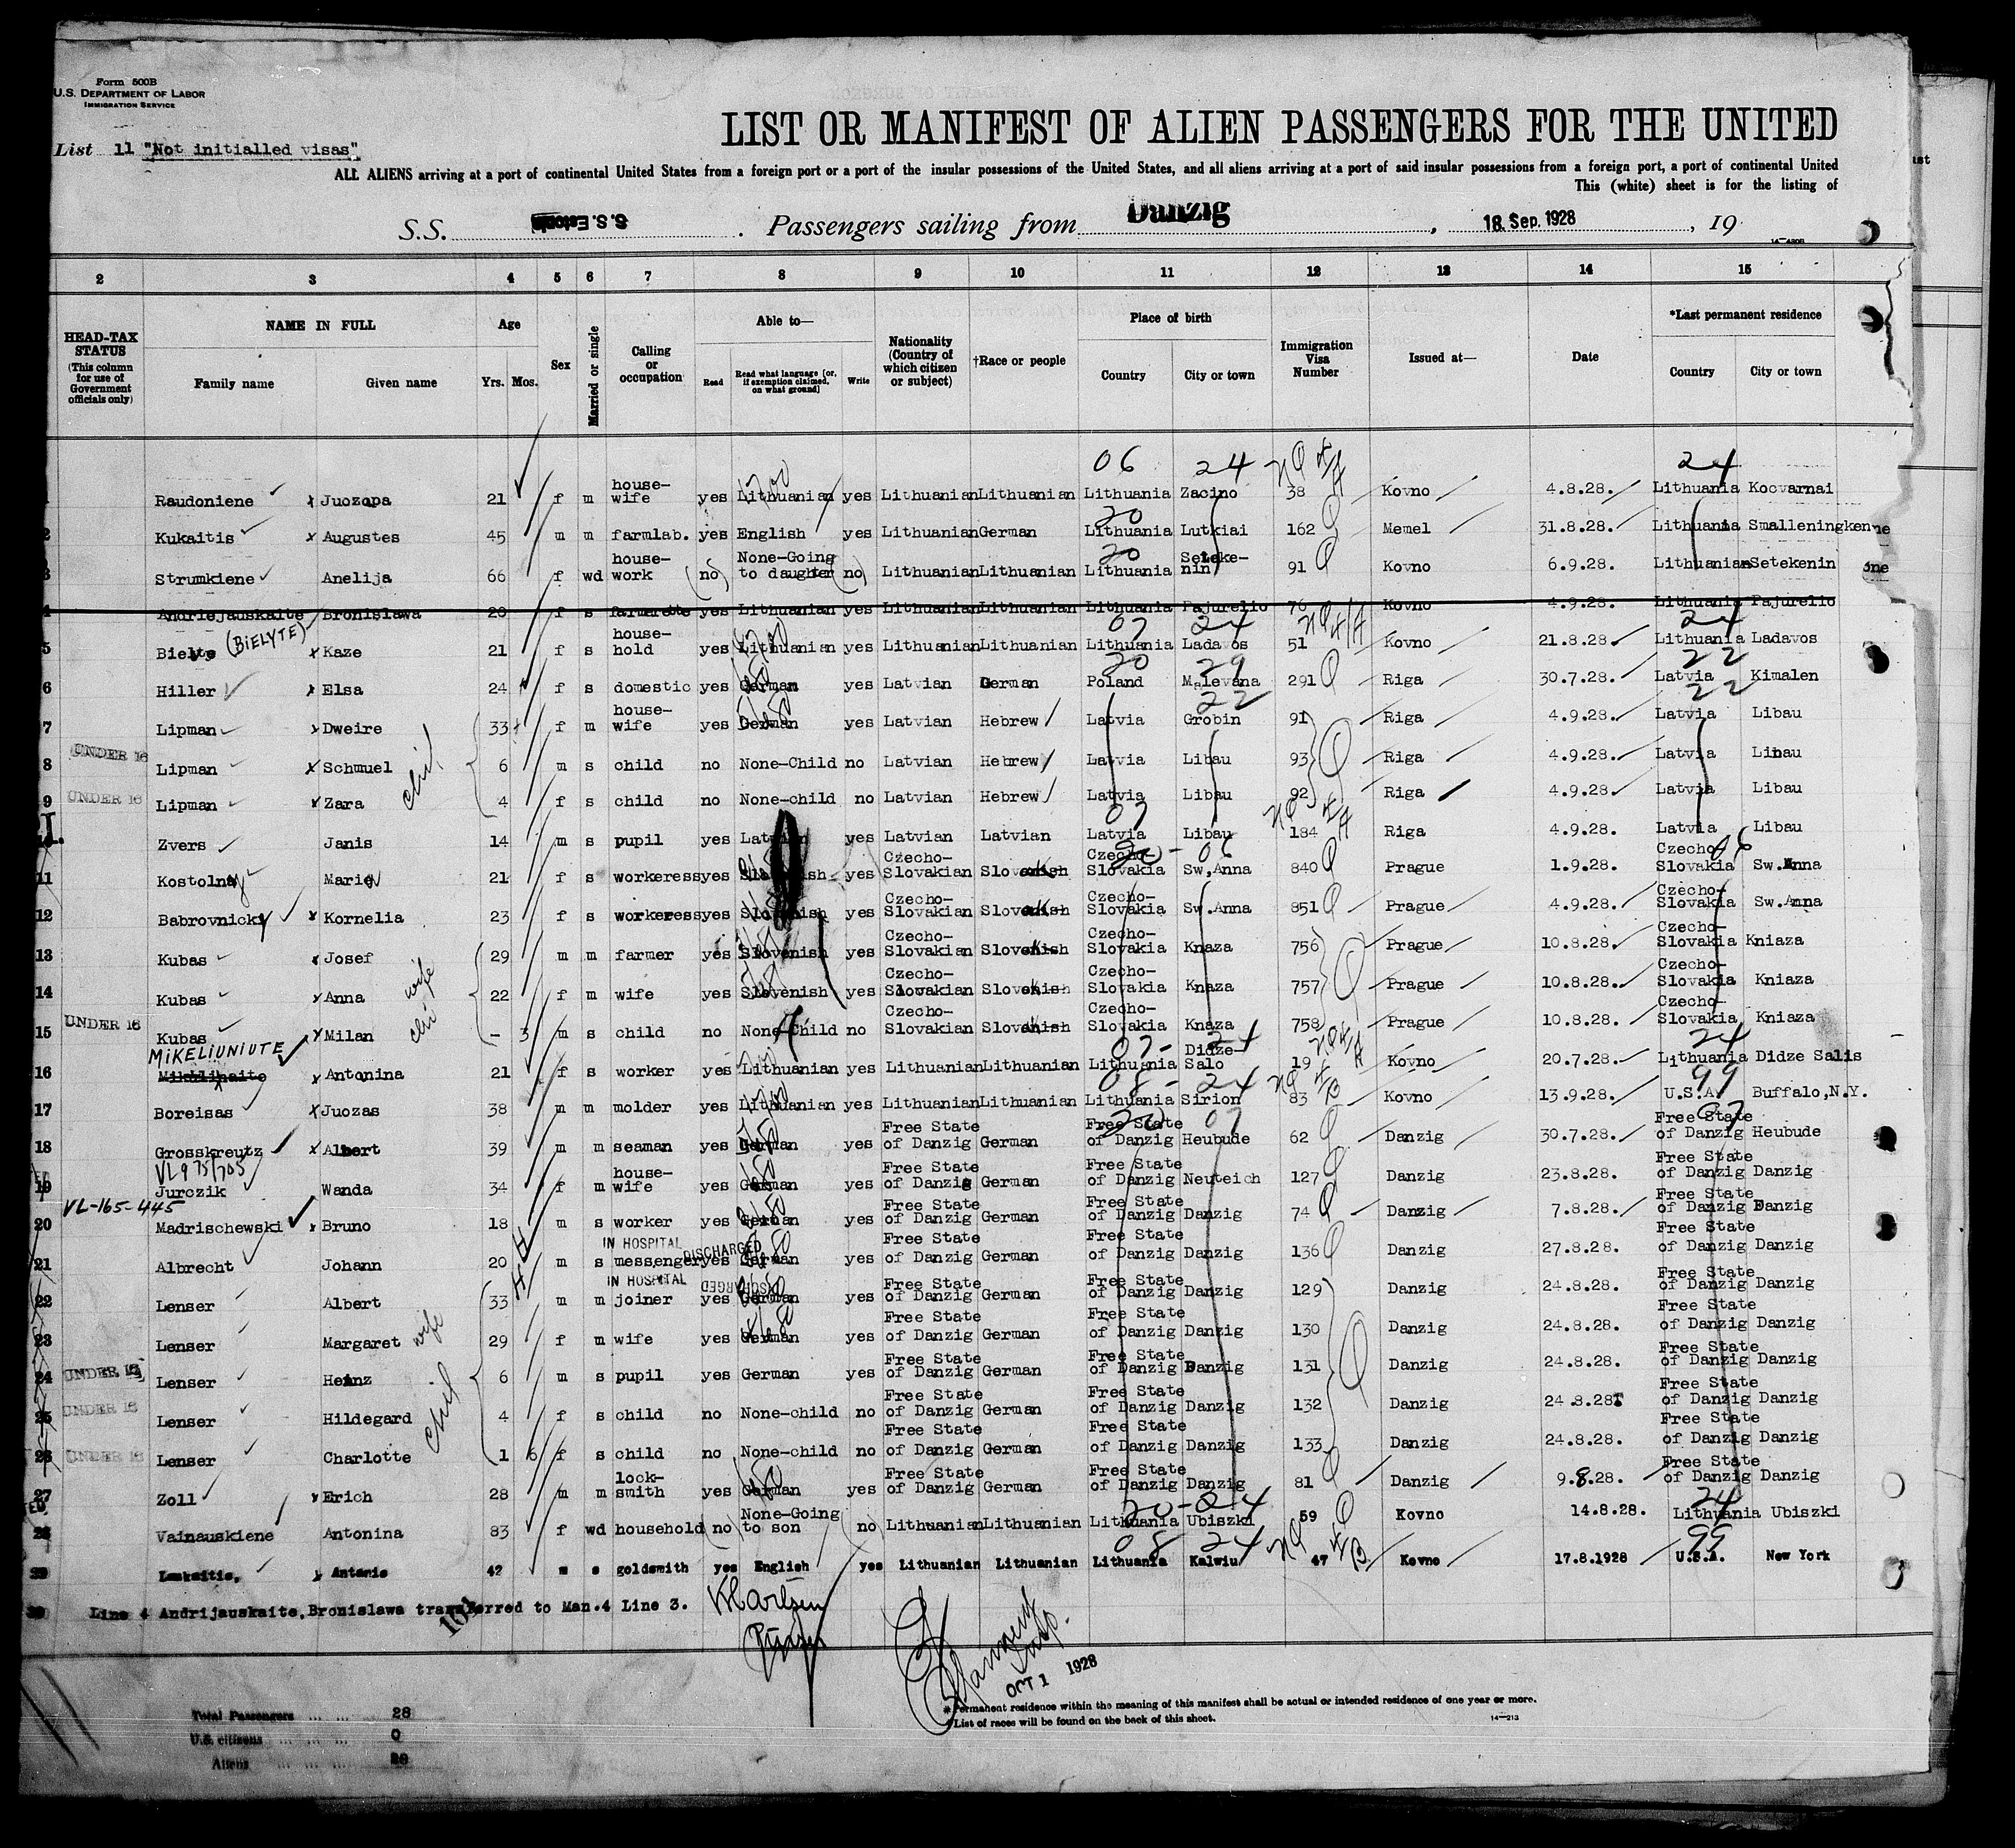 Form 500B
U.S. DEPARTMENT OF LABOR
IMMIGRATION SERVICE
LIST OR MANIFEST OF ALIEN PASSENGERS FOR THE UNITED
List 11 "Not initialled visas"
ALL ALIENS arriving at a port of continental United States from a foreign port or a port of the insular possessions of the United States, and all aliens arriving at a port of said insular possessions from a foreign port, a port of continental United
This (white) sheet is for the listing of
S.S. S.S. Estonia . Passengers sailing from Danzig , 18. Sep. 1928 , 19
2 3 4 5 6 7 8 9 10 11 12 13 14 15
HEAD-TAX STATUS (This column for use of Government officials only) NAME IN FULL Family name Given name Age Yrs. Mos. Sex Married or single Calling or occupation Able to— Read Read what language [or, if exemption claimed, on what ground] Write Nationality (Country of which citizen or subject) †Race or people Place of birth Country City or town Immigration Visa Number Issued at— Date *Last permanent residence Country City or town
06 24 24
Raudoniene Juozapa 21 f m house-wife yes Lithuanian yes Lithuanian Lithuanian Lithuania Zacino 38 Kovno 4.8.28. Lithuania Kocvarnai
2 Kukaitis Augustes 45 m m farmlab. yes English yes Lithuanian German Lithuania Lutkiai 162 Memel 31.8.28. Lithuania Smalleningken
3 Strumkiene Anelija 66 f wd house-work (no) None-Going to daughter (no) Lithuanian Lithuanian Lithuania Seteke-nin 91 Kovno 6.9.28. Lithuanian Setekenin
4 Andriejauskaite Bronislawa 20 f s farmerette yes Lithuanian yes Lithuanian Lithuanian Lithuania Pajurelio 76 Kovno 4.9.28. Lithuania Pajurelio
5 Bielyte (BIELYTE) Kaze 21 f s house-hold yes Lithuanian yes Lithuanian Lithuanian Lithuania Ladavos 51 Kovno 21.8.28. Lithuania Ladavos
6 Hiller Elsa 24 f s domestic yes German yes Latvian German Poland Malevana 291 Riga 30.7.28. Latvia Kimalen
7 Lipman Dweire 33 f m house-wife yes German yes Latvian Hebrew Latvia Grobin 91 Riga 4.9.28. Latvia Libau
8 UNDER 16 Lipman Schmuel 6 m s child no None-Child no Latvian Hebrew Latvia Libau 93 Riga 4.9.28. Latvia Libau
9 UNDER 16 Lipman Zara 4 f s child no None-child no Latvian Hebrew Latvia Libau 92 Riga 4.9.28. Latvia Libau
Zvers Janis 14 m s pupil yes Latvian yes Latvian Latvian Latvia Libau 184 Riga 4.9.28. Latvia Libau
11 Kostolny Maria 21 f s workeress yes yes Czecho-Slovakian Slovak Czecho-Slovakia Sw.Anna 840 Prague 1.9.28. Czecho-Slovakia Sw.Anna
12 Babrovnicky Kornelia 23 f s workeress yes Slovenish yes Czecho-Slovakian Slovak Czecho-Slovakia Sw.Anna 851 Prague 4.9.28. Czecho-Slovakia Sw.Anna
13 Kubas Josef 29 m m farmer yes Slovenish yes Czecho-Slovakian Slovenish Czecho-Slovakia Knaza 756 Prague 10.8.28. Czecho-Slovakia Kniaza
14 Kubas Anna wife 22 f m wife yes Slovenish yes Czecho-Slovakian Slovenish Czecho-Slovakia Knaza 757 Prague 10.8.28. Czecho-Slovakia Kniaza
15 UNDER 16 Kubas Milan - 3 m s child no None-Child no Czecho-Slovakian Slovenish Czecho-Slovakia Knaza 758 Prague 10.8.28. Czecho-Slovakia Kniaza
MIKELIUNIUTE
16 Antonina 21 f s worker yes Lithuanian yes Lithuanian Lithuanian Lithuania Didze-Salo 19 Kovno 20.7.28. Lithuania Didze Salis
17 Boreisas Juozas 38 m m molder yes Lithuanian yes Lithuanian Lithuanian Lithuania Sirion 83 Kovno 13.9.28. U.S.A. Buffalo,N.Y.
18 Grosskreutz Albert 39 m m seaman yes German yes Free State of Danzig German Free State of Danzig Heubude 62 Danzig 30.7.28. Free State of Danzig Heubude
VL975/705
19 Jurczik Wanda 34 f m house-wife yes German yes Free State of Danzig German Free State of Danzig Neuteich 127 Danzig 23.8.28. Free State of Danzig Danzig
VL-165-445
20 Madrischewski Bruno 18 m s worker yes German yes Free State of Danzig German Free State of Danzig Danzig 74 Danzig 7.8.28. Free State of Danzig Danzig
IN HOSPITAL DISCHARGED
21 Albrecht Johann 20 m s messenger yes German yes Free State of Danzig German Free State of Danzig Danzig 136 Danzig 27.8.28. Free State of Danzig Danzig
IN HOSPITAL DISCHARGED
22 Lenser Albert 33 m m joiner yes German yes Free State of Danzig German Free State of Danzig Danzig 129 Danzig 24.8.28. Free State of Danzig Danzig
23 Lenser Margaret wife 29 f m wife yes German yes Free State of Danzig German Free State of Danzig Danzig 130 Danzig 24.8.28. Free State of Danzig Danzig
24 UNDER 16 Lenser Heinz 6 m s pupil yes German yes Free State of Danzig German Free State of Danzig Danzig 131 Danzig 24.8.28. Free State of Danzig Danzig
25 UNDER 16 Lenser Hildegard 4 f s child no None-child no Free State of Danzig German Free State of Danzig Danzig 132 Danzig 24.8.28 Free State of Danzig Danzig
26 UNDER 16 Lenser Charlotte 1 6 f s child no None-child no Free State of Danzig German Free State of Danzig Danzig 133 Danzig 24.8.28. Free State of Danzig Danzig
27 Zoll Erich 28 m m lock-smith yes German yes Free State of Danzig German Free State of Danzig Danzig 81 Danzig 9.8.28. Free State of Danzig Danzig
28 Vainauskiene Antonina 83 f wd household no None-Going to son no Lithuanian Lithuanian Lithuania Ubiszki 59 Kovno 14.8.28. Lithuania Ubiszki
29 Antanis 42 m s goldsmith yes English yes Lithuanian Lithuanian Lithuania Kalwiu 47 Kovno 17.8.1928 U.S.A. New York
30 Line 4 Andrijauskaite,Bronislawa transferred to Man.4 Line 3.
OCT 1 1928
* Permanent residence within the meaning of this manifest shall be actual or intended residence of one year or more.
† List of races will be found on the back of this sheet.
14—213
Total Passengers ... ... 28
U.S. citizens ... ... ... 0
Aliens ... ... ... 28